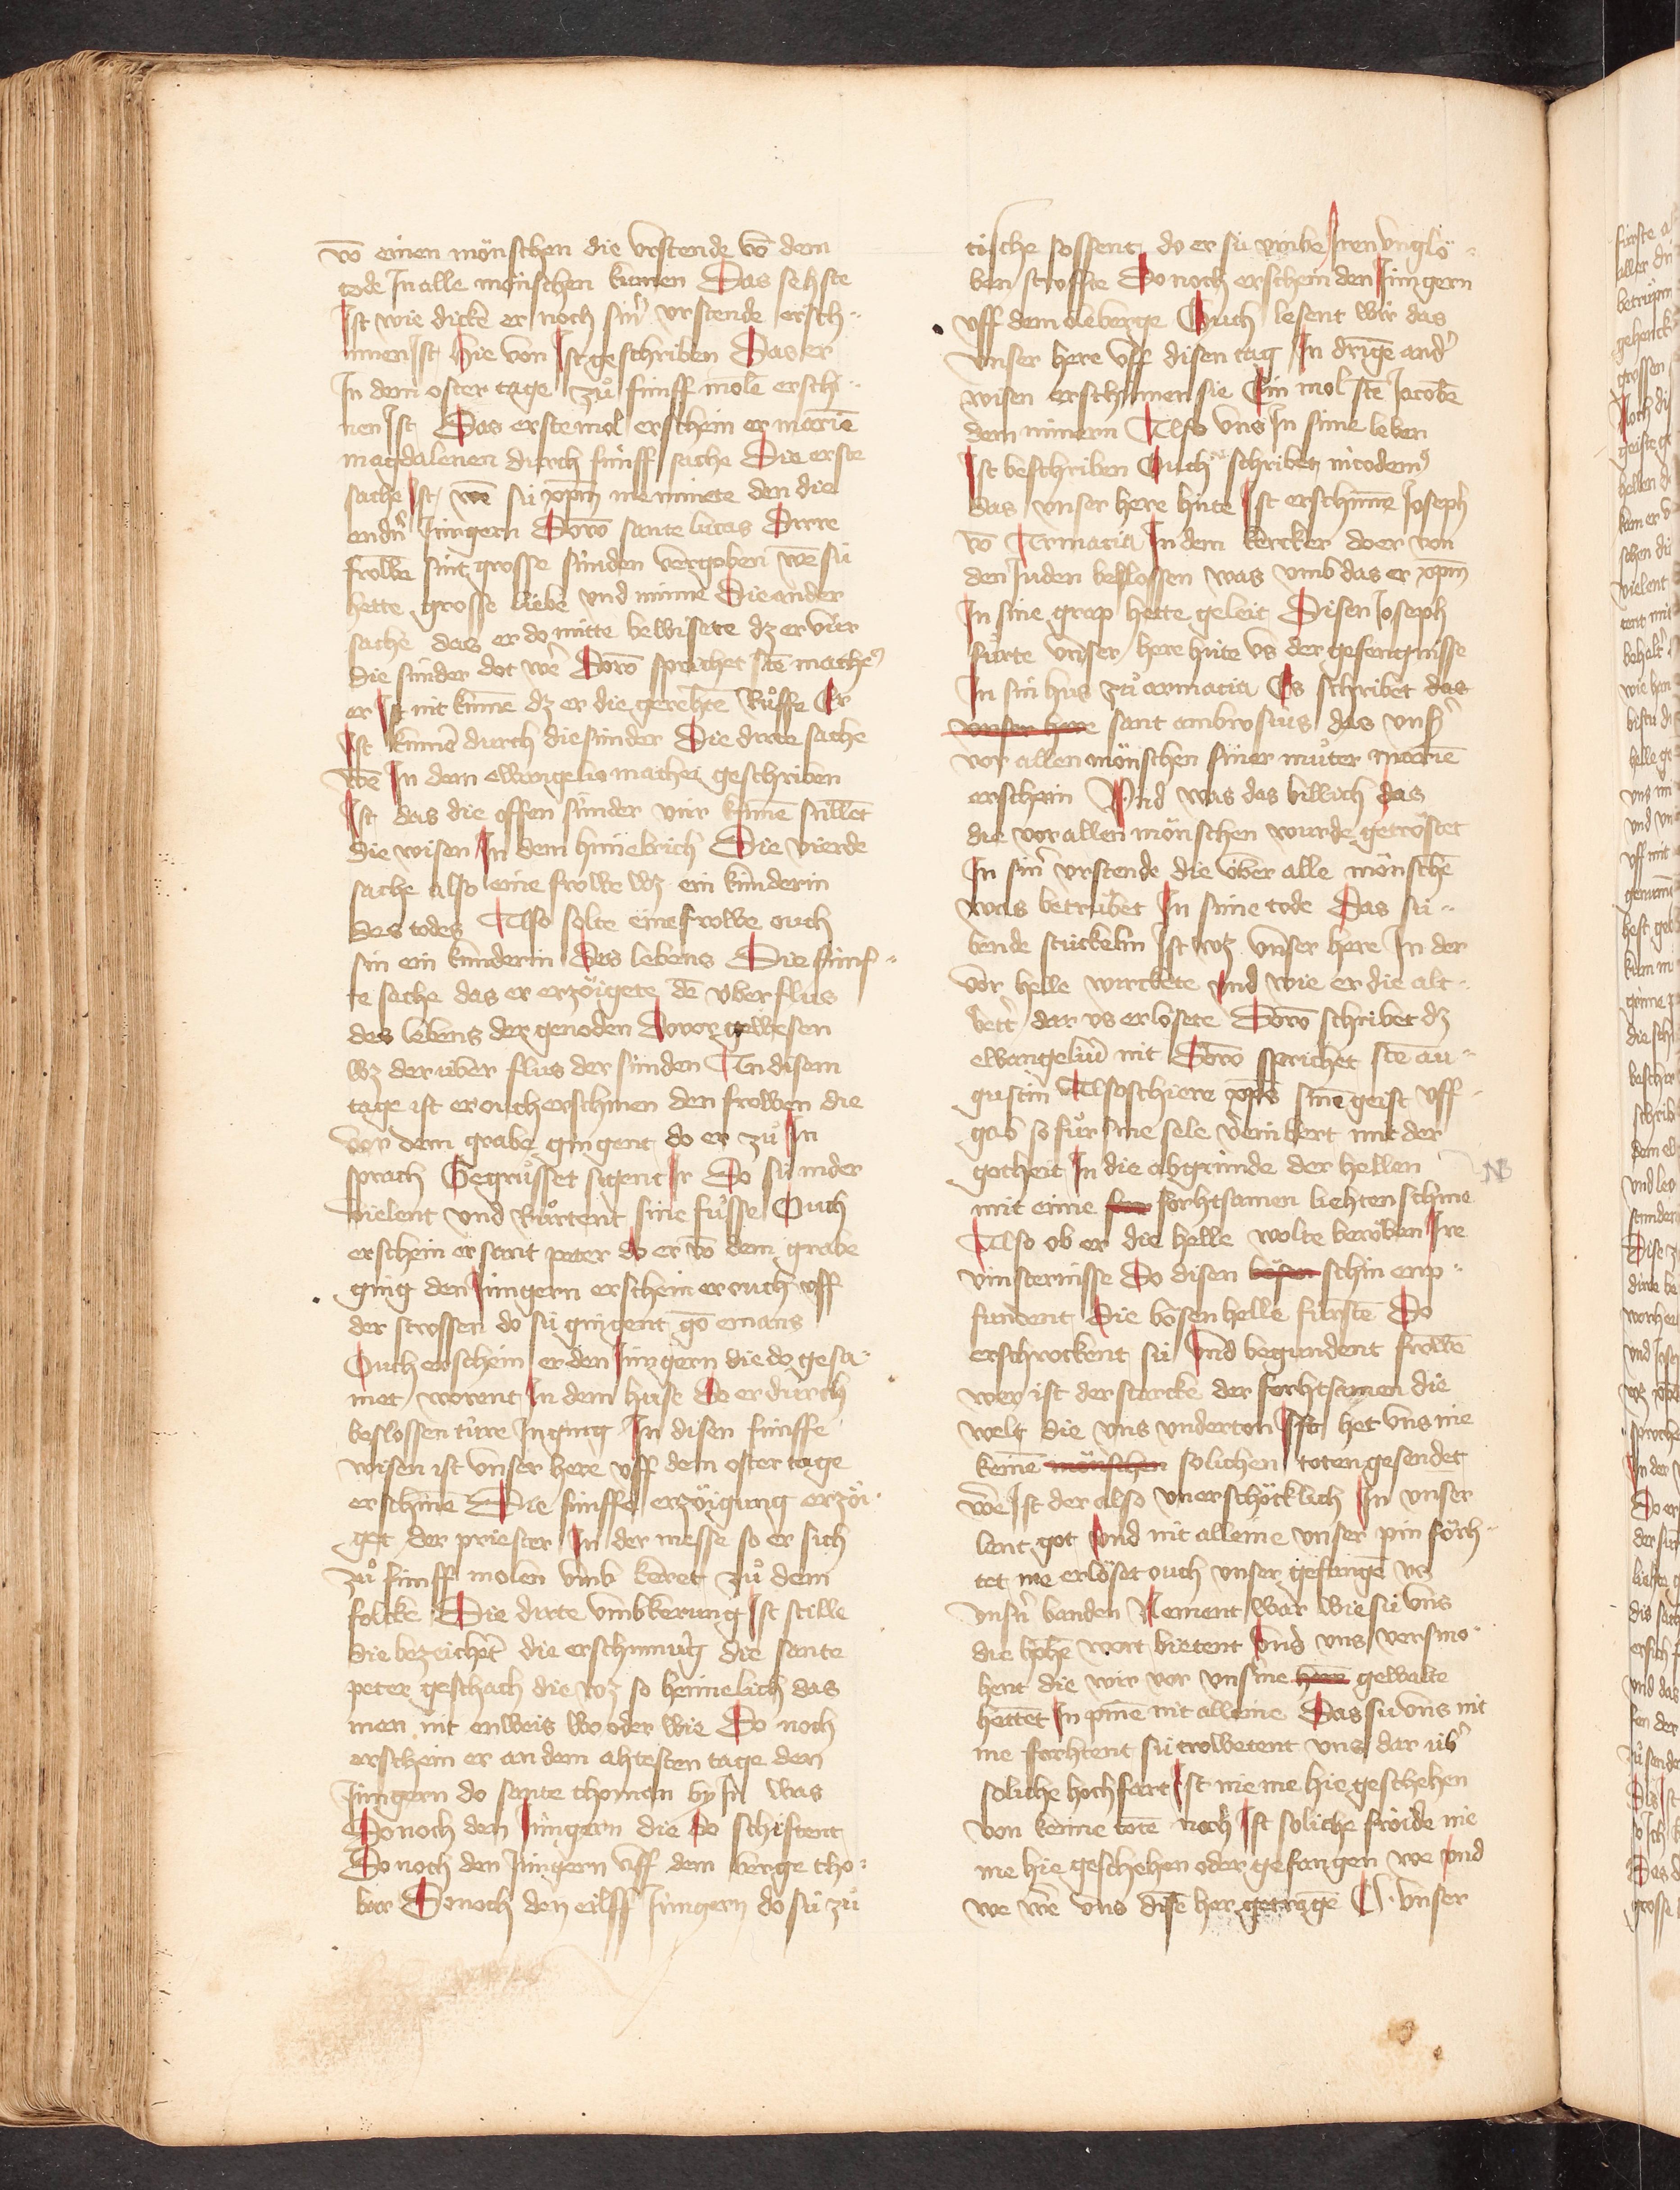 vō einen mönschen die vrstende vō dem
tode In alle mönschen kumen Das sehste
Ist wie dicke er noch sinr̄ vrstende ersch-
inen Ist hie von Ist geschriben Das er
In dem oster tage zů fúnff molē erschi-
nen Ist Das erste mol erschein er mariē
magdalenen durch fúnff sache Die erste
sache Ist wē sú xp̄m me minete den die
andn̄ Jungern Dorō sante lucas
frowē sint grosse súnden vergeben wē sú
hette grosse liebe vnd minne Die ander
sache das er do mitte bewisete dz er vúr
die súnder dot wē Dorō sprichet stē mathes
er Ist nit kumē dz er die gerehtē Růffe Er
Ist kumē durch die súnder Die dirte sache
wē In dem ewangelio mathei geschriben
Ist das die offen súnder vúr kumē súllēt
die wisen In dem himelrich Die vierde
sache also eine frowe wz ein kúnderin
des todes Also solte eine frowe ouch
sin ein kúnderin des lebens Die fúnf-
te sache das er erzöigete dē vberflus
des lebens der genoden Dovor gewesen
wz der úber flus der súnden An disem
tage ist er ouch erschinen den frowen die
von dem grabe gingent do er zů In
sprach Gegrůsset sigent Ir Do sú nider
vielent vnd Růrtent sine fůsse Ouch
erschein er sant peter do er vō dem grabe
ging den Jungern erschein er ouch vff
der strossen do sú gingent gō emaus
Ouch erschein er den Jungern die do gesa-
met worent In dem huse Do er durch
beslossen túrre In ging In disen fúnffe
wisen ist vnser here vff dem oster tage
erschinē Die fúnffe erzöigung erzöi-
get der priester In der messe so er sich
zů fúnff molen vmb keret zů dem
folcke Die dirte vmbkerung Ist stille
die bezeichet die erschinnūg die sante
peter geschach die wz so heimelich das
man nit enweis wo oder wie Do noch
erschein er an dem ahtesten tage den
Jungern do sante thoman by In was
Donoch den Jungern die do schiftent
Donoch den Jungern vff dem berge tho-
bor Donoch den eilff Jungern do sú zů
tische sossent do er sú vmbe Iren vnglö-
ben stroffte Donoch erschein den Jungern
vff dem öleberge Ouch lesent wir das
vnser here vff disen tag In drigē andr̄
wisen erschinnen sie Ein mol stē Jacobē
dem minern Also vns In sime leben
Ist beschriben Ouch schribet nicodemꝰ
das vnser here húte Ist erschinne Joseph
vō Armatia In dem kercker do er von
den Juden beslossen was vmb das er xp̄m
In sine grap hette geleit Disen Joseph
fůrte vnser here húte vs der gefengnisse
In sin hus zů armatia Es schribet das
vnser here sant ambrosius das vnsr̄
vor allen mönschen siner můter mariē
erschein Vnd was das billich das
die vor allen mönschen wurde getröstet
In sinr̄ vrstende die über alle mönschē
was betrůbet In sime tode Das sú-
bende stúckelin Ist wz vnser here In der
vor helle wirckete vnd wie er die alt-
vett̄ dar vs erlösete Dorō schribet dz
ewangeliū nit Dorō sprichet stē au-
gustin Also schiere xp̄s sinē geist vff-
gab so fůr sine sele vereinbert mit der
gotheit In die abgrúnde der hellen
mit eime for forhtsamen liehten schine
Also ob er die helle wolte beröben Ire
vinsternisse Do disen bösen schin enp-
fundent die bösen helle fúrstē Do
erschrockent sú vnd begundent frowē
wer ist der starcke der forhtsamen die
welt die vns vnderton Ist het vns nie
keinē mönschen solichen toten gesendet
wē Ist der also vnerschöcklich In vnser
lant got vnd nit alleine vnser pin förh-
tet me erlöset ouch vnser gefangē vs
vnsn̄ banden Nement war wie sú vns
die wort bietent vnd vns versmo-
hent die wir vor vnsme here gewalte
hettēt In pinē nit alleine Das sú vns nit
me forhtent sú trowetent vns dar úbr̄
soliche hochfart Ist nie me hie geschehen
von keime totē noch Ist soliche fröide nie
me hie geschehen oder gefangen we vnd
we wē vns disē har getragē O vnser
NB